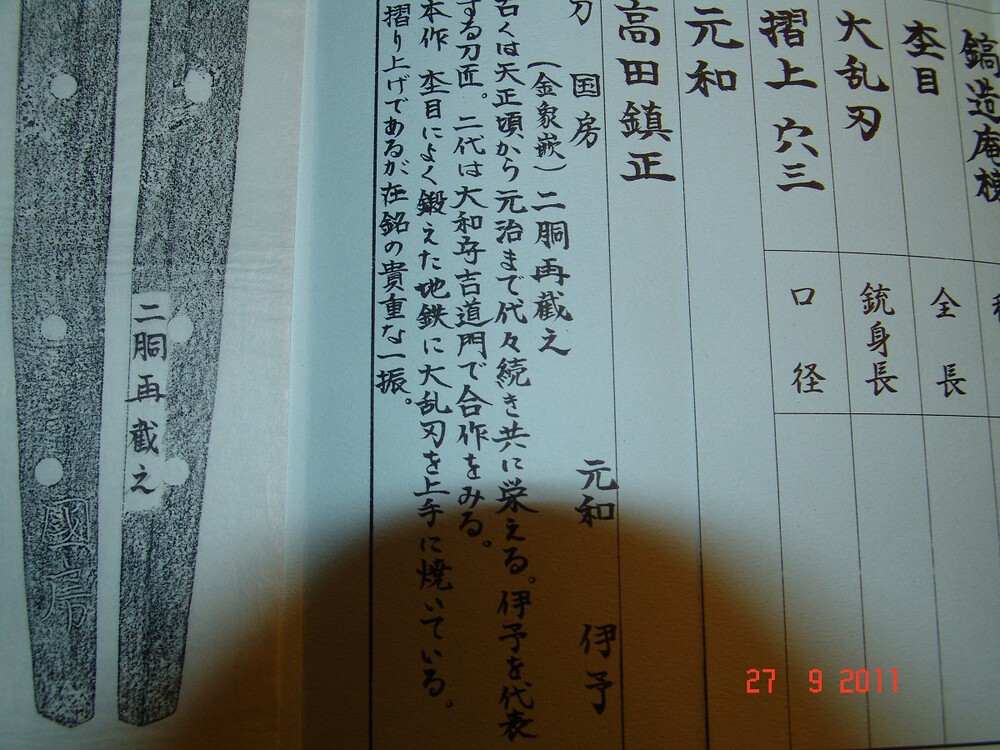 鎬造庵棟
杢目
全長
大乱刃
銃身長
摺上 穴三
口径
元和
高田鎮正
刀 国房 元和 伊予
(金象嵌)二胴再截之
古くは天正頃から元治まで代々続き共に栄える。伊予を代表
する刀匠。二代は大和守吉道門で合作をみる。
本作 杢目によく鍛えた地鉄に大乱刃を上手に焼いている。
摺り上げであるが在銘の貴重な一振。
二胴再截之
國房
27 9 2011